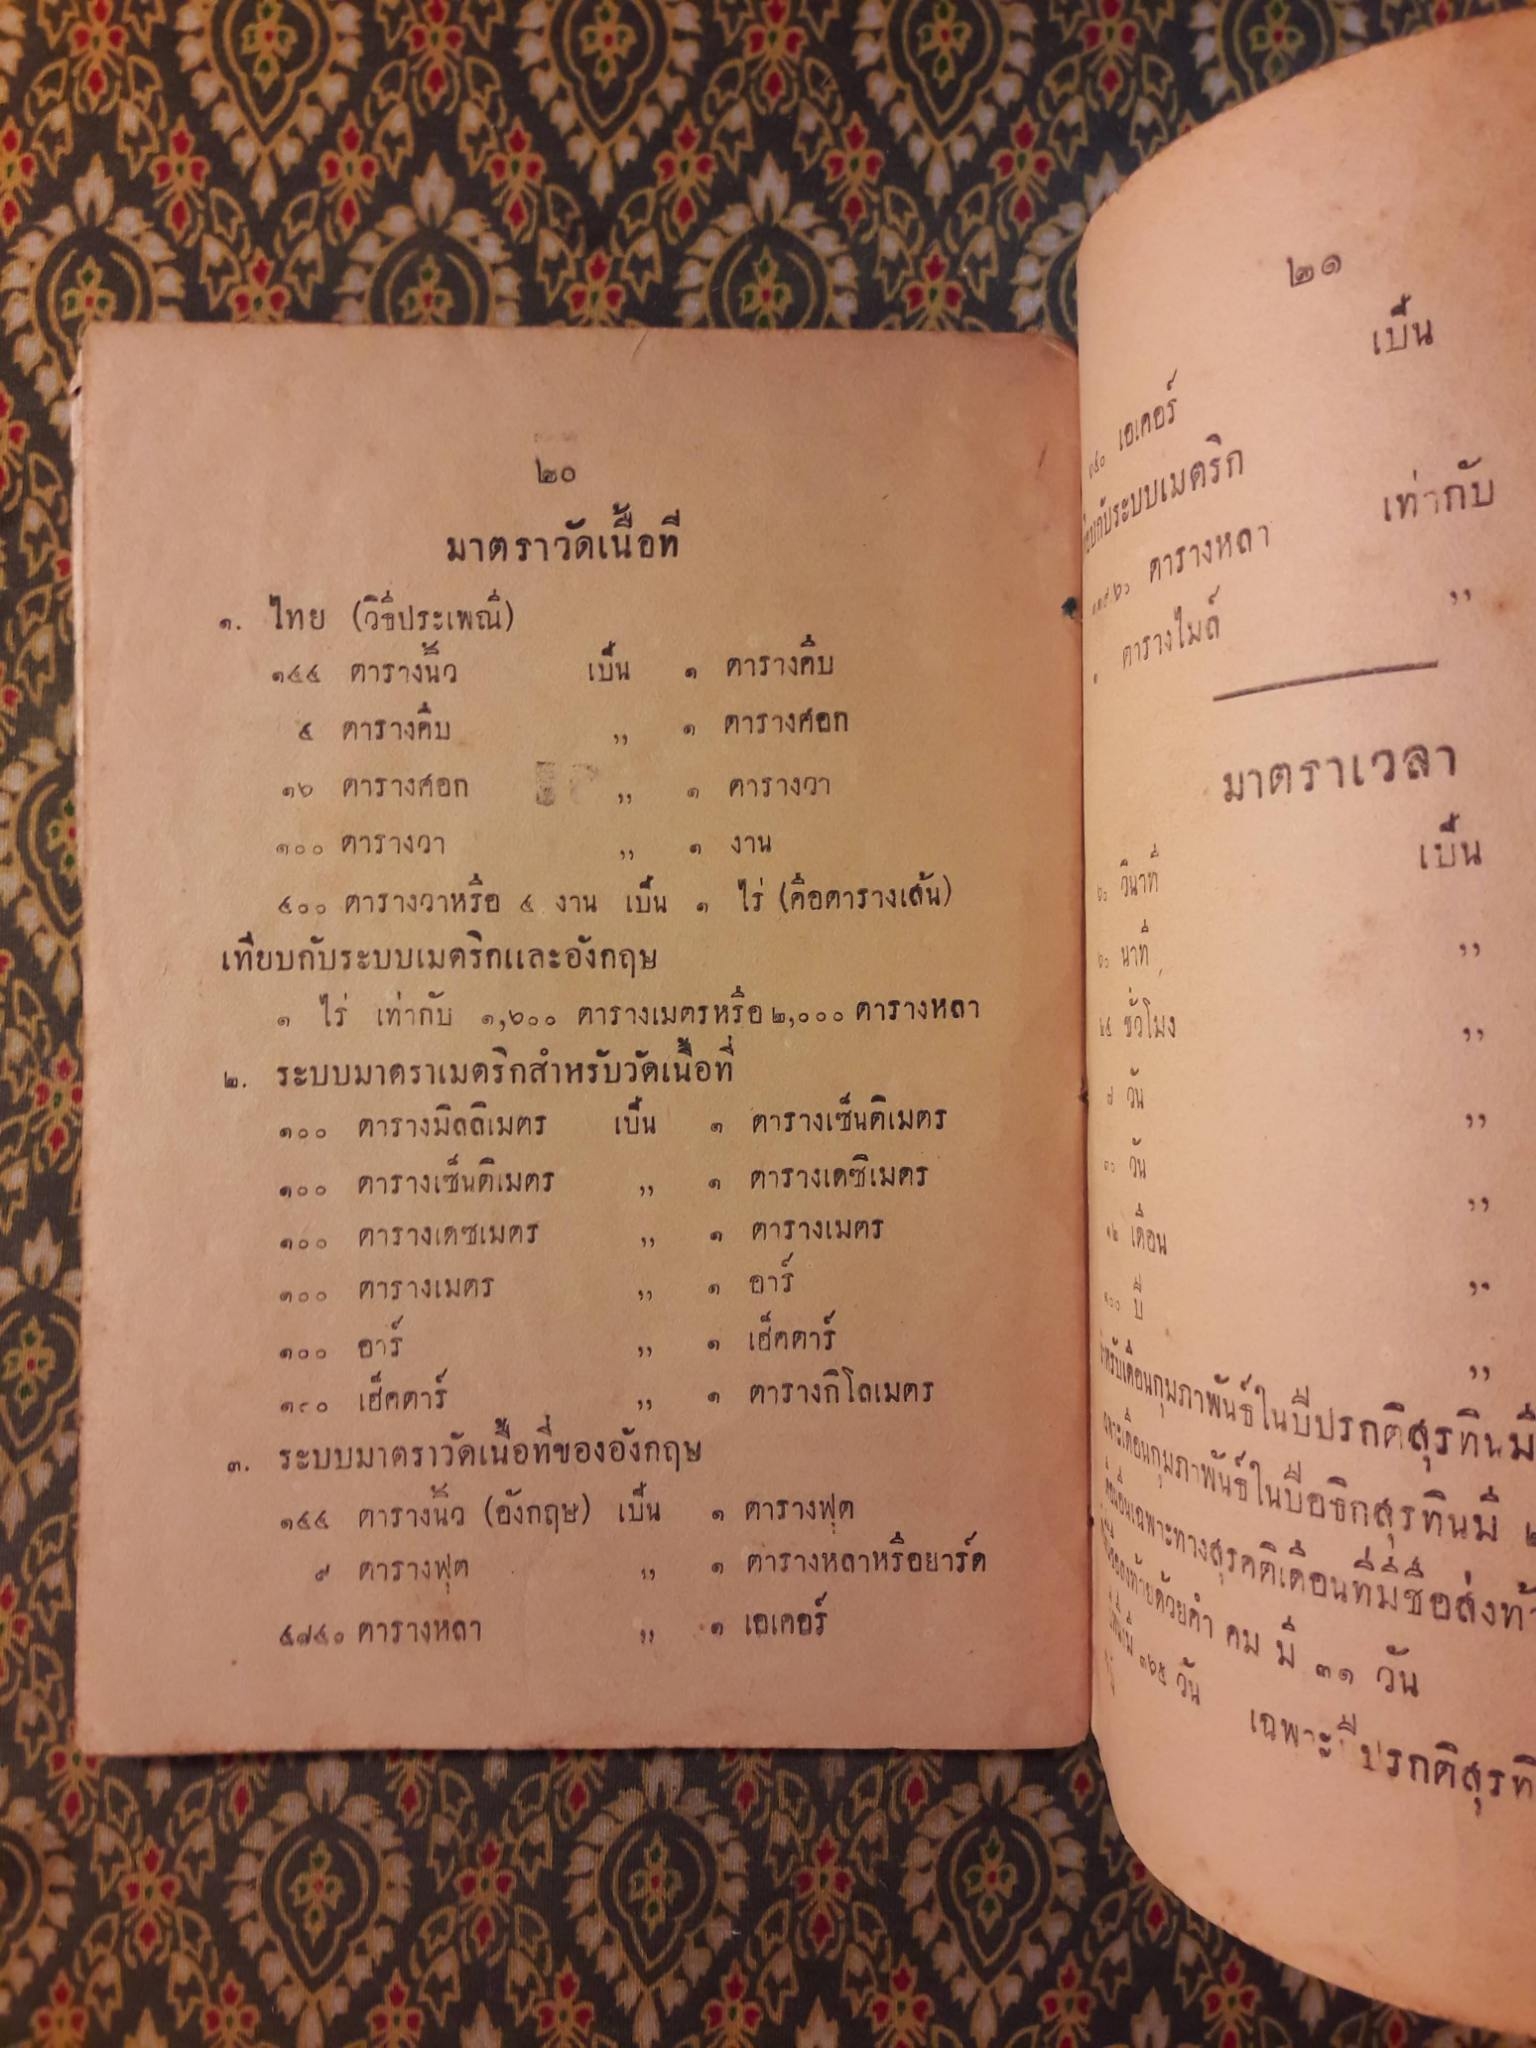 ๒๐
มาตราวัดเนื้อที่
๑. ไทย (วิธีประเพณี)
๑๔๔ ตารางนิ้ว เป็น ๑ ตารางคืบ
๔ ตารางคืบ ,, ๑ ตารางศอก
๑๖ ตารางศอก ,, ๑ ตารางวา
๑๐๐ ตารางวา ,, ๑ งาน
๔๐๐ ตารางวาหรือ ๔ งาน เป็น ๑ ไร่ (คือตารางเส้น)
เทียบกับระบบเมตริกและอังกฤษ
๑ ไร่ เท่ากับ ๑,๖๐๐ ตารางเมตรหรือ ๒,๐๐๐ ตารางหลา
๒. ระบบมาตราเมตริกสำหรับวัดเนื้อที่
๑๐๐ ตารางมิลลิเมตร เป็น ๑ ตารางเซ็นติเมตร
๑๐๐ ตารางเซ็นติเมตร ,, ๑ ตารางเดซิเมตร
๑๐๐ ตารางเดซเมตร ,, ๑ ตารางเมตร
๑๐๐ ตารางเมตร ,, ๑ อาร์
๑๐๐ อาร์ ,, ๑ เฮ็คตาร์
เฮ็คตาร์ ,, ๑ ตารางกิโลเมตร
๓. ระบบมาตราวัดเนื้อที่ของอังกฤษ
๑๔๔ ตารางนิ้ว (อังกฤษ) เป็น ๑ ตารางฟุต
๙ ตารางฟุต ,, ๑ ตารางหลาหรือยาร์ด
๔๘๔๐ ตารางหลา ,, ๑ เอเคอร์
๒๑
เป็น
เอเคอร์
กับระบบเมตริก
ตารางหลา เท่ากับ
ตารางไมล์ ,,
มาตราเวลา
๖๐ วินาที เป็น
๖๐ นาที ,,
๒๔ ชั่วโมง ,,
๗ วัน ,,
๓๐ วัน ,,
๑๒ เดือน ,,
๑๐๐ ปี ,,
เดือนกุมภาพันธ์ในปีปรกติสุรทินมี
เดือนกุมภาพันธ์ในปีอธิกสุรทินมี
เฉพาะทางสุรคติเดือนที่มีชื่อส่งท้
ท้ายด้วยคำ คม มี ๓๑ วัน
๓๖๕ วัน เฉพาะปีปรกติสุรทิ